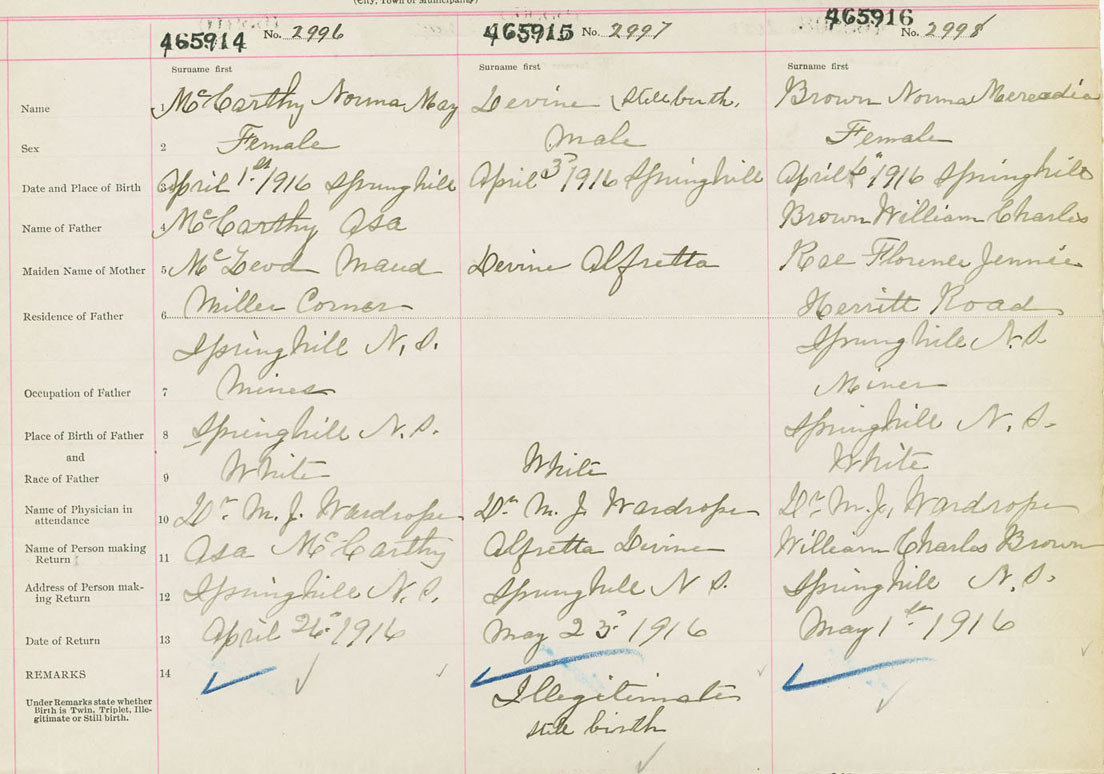 (City, Town or Municipality)
465914 No. 2996 465915 No. 2997 465916 No. 2998
Surname first Surname first Surname first
Name 1 McCarthy Norma May Devine (still birth. Brown Norma
Sex 2 Female Male Female
Date and Place of Birth 3 April 1st 1916 Springhill April 3rd 1916 Springhill April 6th 1916 Springhill
Name of Father 4 McCarthy Asa Brown William Charles
Maiden Name of Mother 5 McLeod Maud Devine Alfretta Rae Florence Jennie
Residence of Father 6 Miller Corner Herritt Road
Springhill N.S. Springhill N.S
Occupation of Father 7 Miner Miner
Place of Birth of Father 8 Springhill N.S. Springhill N.S.
and
Race of Father 9 White White White
Name of Physician in attendance 10 Dr. M. J. Wardrope Dr. M. J. Wardrope Dr. M. J. Wardrope
Name of Person making Return 11 Asa McCarthy Alfretta Divine William Charles Brown
Address of Person making Return 12 Springhill N.S. Springhill N S. Springhill N.S.
Date of Return 13 April 26th 1916 May 23rd 1916 May 1st 1916
REMARKS 14
Under Remarks state whether Birth is Twin, Triplet, Illegitimate or Still birth.
Illegitimate
still birth